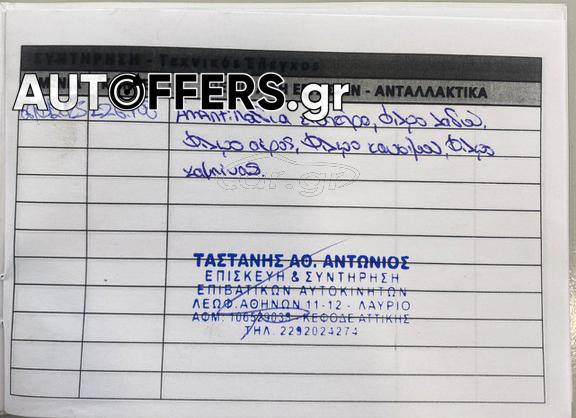 ΣΥΝΤΗΡΗΣΗ - Τεχνικός Έλεγχος
AUTOFFERS.gr
- ΑΝΤΑΛΛΑΚΤΙΚΑ
φίλτρο λαδιού,
Φίλτρο αέρος, Φίλτρο καυσίμου, Φίλτρο
καμπίνας.
car.gr
ΤΑΣΤΑΝΗΣ ΑΘ. ΑΝΤΩΝΙΟΣ
ΕΠΙΣΚΕΥΗ & ΣΥΝΤΗΡΗΣΗ
ΕΠΙΒΑΤΙΚΩΝ ΑΥΤΟΚΙΝΗΤΩΝ
ΛΕΩΦ. ΑΘΗΝΩΝ 11-12 - ΛΑΥΡΙΟ
ΑΦΜ: 106529035 - ΚΕΦΟΔΕ ΑΤΤΙΚΗΣ
ΤΗΛ. 2292024274